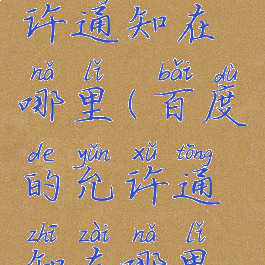 许通知在
nǎ lǐ bǎi dù
哪里(百度
de yǔn xǔ tōng
的允许通
zhī zài nǎ lǐ
知在哪里